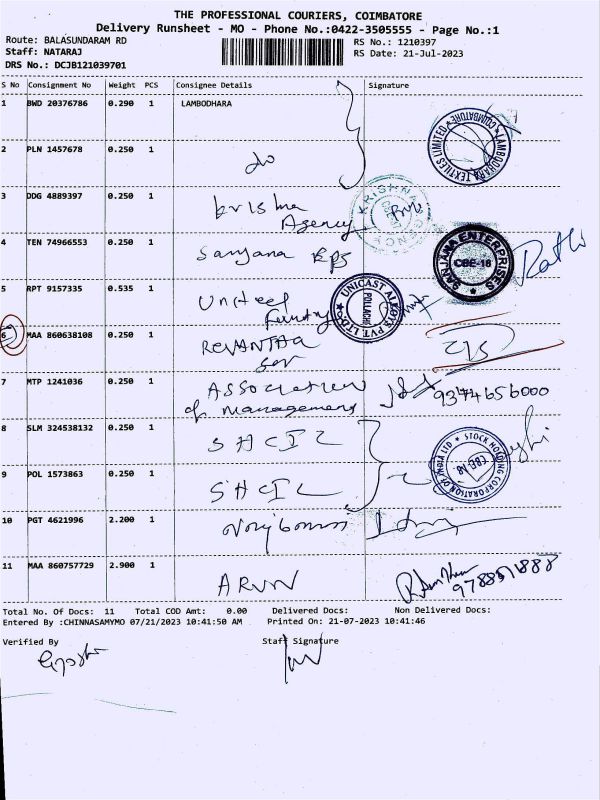 THE PROFESSIONAL COURIERS, COIMBATORE
Delivery Runsheet - MO - Phone No.:0422-3505555 - Page No.:1
Route: BALASUNDARAM RD
RS No.: 1210397
Staff: NATARAJ
RS Date: 21-Jul-2023
DRS No.: DCJB121039701
S No Consignment No Weight PCS Consignee Details Signature
1 BWD 20376786 0.290 1 LAMBODHARA
LAMBODHARA TEXTILES LIMITED COIMBATORE
2 PLN 1457678 0.250 1 do
3 DDG 4889397 0.250 1 Krishna
Agency
KRISHNA AGENCY
4 TEN 74966553 0.250 1 Sanjana EPS
SANJANA ENTERPRISES CBE-18
5 RPT 9157335 0.535 1 United
Foundry
UNICAST ALLOYS PVT. LTD. POLLACHI
6 MAA 860638108 0.250 1 REVANTHA
7 MTP 1241036 0.250 1 ASSOCIATION
of management
9374656000
8 SLM 324538132 0.250 1 SHCIL
STOCK HOLDING CORPORATION OF INDIA LTD CBE-18
9 POL 1573863 0.250 1 SHCIL
10 PGT 4621996 2.200 1
11 MAA 860757729 2.900 1 ARUN
Total No. Of Docs: 11 Total COD Amt: 0.00 Delivered Docs: Non Delivered Docs:
Entered By :CHINNASAMYMO 07/21/2023 10:41:50 AM Printed On: 21-07-2023 10:41:46
Verified By Staff Signature